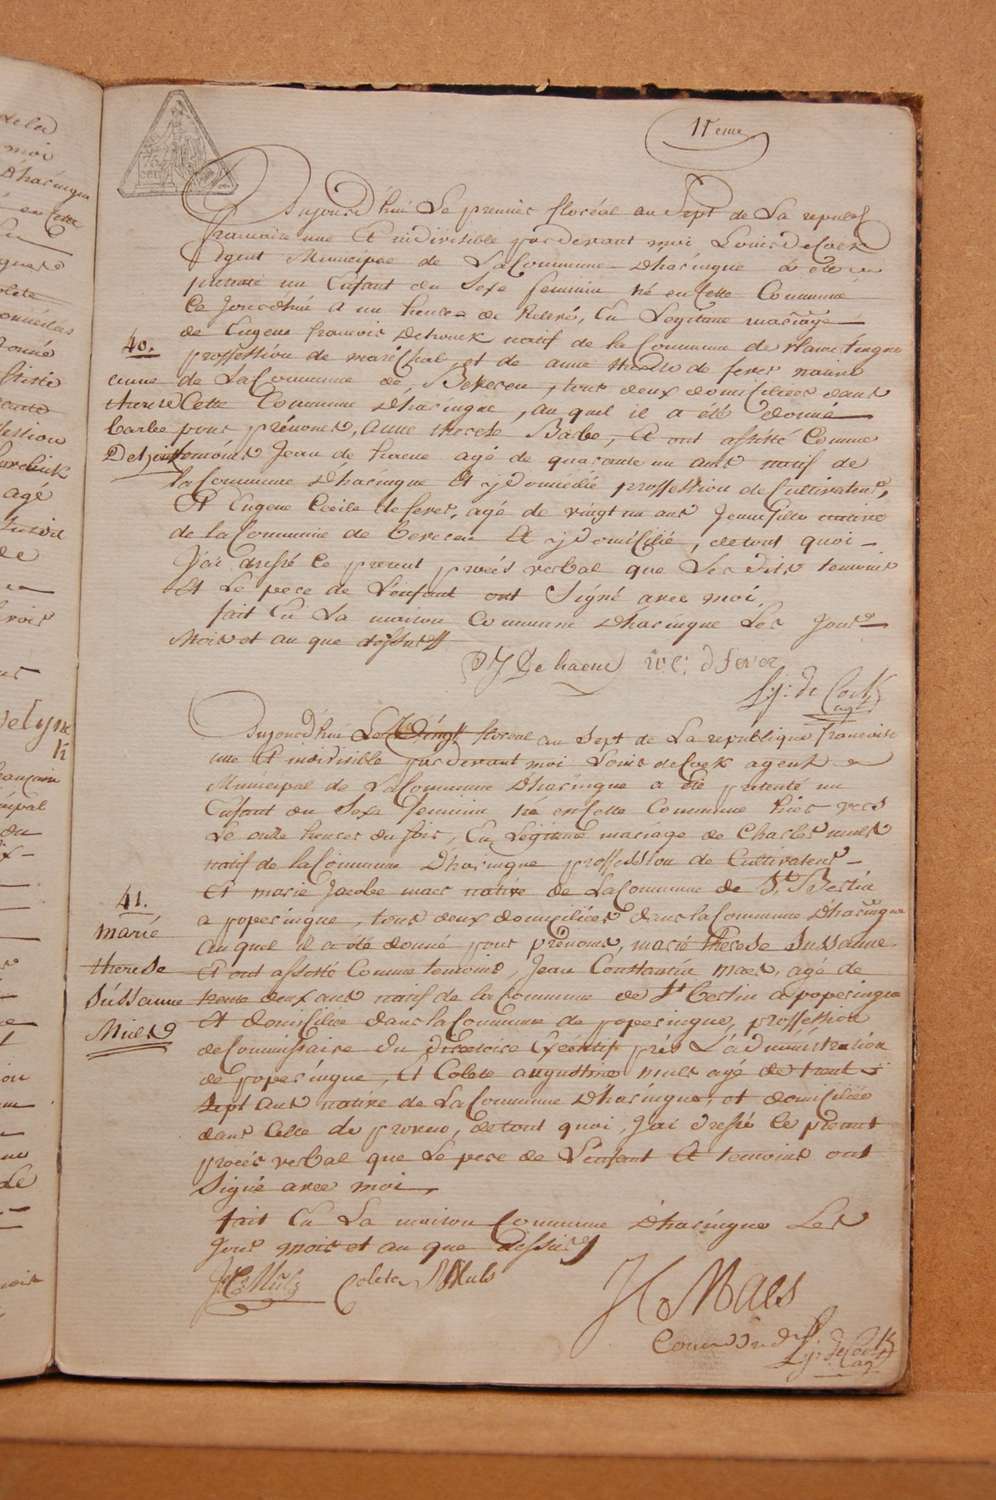 11eme
Aujourd'hui Le premier floréal an Sept de La republ
francaise une Et indivisible pardevant moi Louis DeCock
agent Municipal de La Commune Dharingue a été
presenté un Enfant du Sexe feminin né en Cette Commune
Ce Jourdhui a un heure de Relevé, En Legitime mariage
de Eugene francois Dehouck natif de la Commune de
proffession de maréchal, et de anne de fever native
de La Commune de Beveren, tous deux domiciliées dans
Cette Commune Dharingue, au quel il a été donné
pour prénoms, anne therese Barbe, Et ont assisté Comme
temoins Jean de haene agé de quarante un ans natif de
la Commune Dharingue Et y Domicilié proffession de Cultivateur,
Et Eugene Cecile de fever, agé de vingt un ans Jeune fille native
de la Commune de Beveren Et y Domicilié, de tout quoi
J'ai dressé Ce present procés verbal que Les dits temoins
Et Le pere de L'enfant ont Signé avec moi
fait En La maison Commune Dharingue Les Jour
Mois et an que dessus
40.
anne
therese
barbe
P J De haene E: C: D Fever
L: J: de Cock
agt
Aujourd'hui Le Vingt floréal an Sept de La republique francoise
une Et indivisible pardevant moi Louis de Cock agent
Municipal de La Commune Dharingue a été presenté un
Enfant du Sexe feminin né en Cette Commune hier vers
Le onze heures du soir, En Legitime mariage de Charles muls
natif de la Commune Dharingue proffession de Cultivateur
Et marie Jacobe maes native de La Commune de St Bertin
a poperingue, tous deux domiciliées dans la Commune Dharingue
au quel il a été donné pour prénoms, marie therese Sussanne
Et ont assisté Comme temoins, Jean Constantin maes, agé de
trente deux ans natif de la Commune de St Bertin a poperingue
Et domicilié dans la Commune de poperingue, proffession
de Commissaire du directoire Executif près L'administration
de poperingue, Et Colete augustine muls agé de trent
Sept ans native de La Commune Dharingue, et domiciliée
dans Celle de proven, de tout quoi, J'ai dressé Ce present
procés verbal que Le pere de L'enfant Et temoins ont
Signé avec moi
fait En La maison Commune Dharingue Les
Jour mois et an que dessus
41.
marie
therese
Sussanne
Muls
Colete Muls
J C Maes
L: J: de Cock
agt